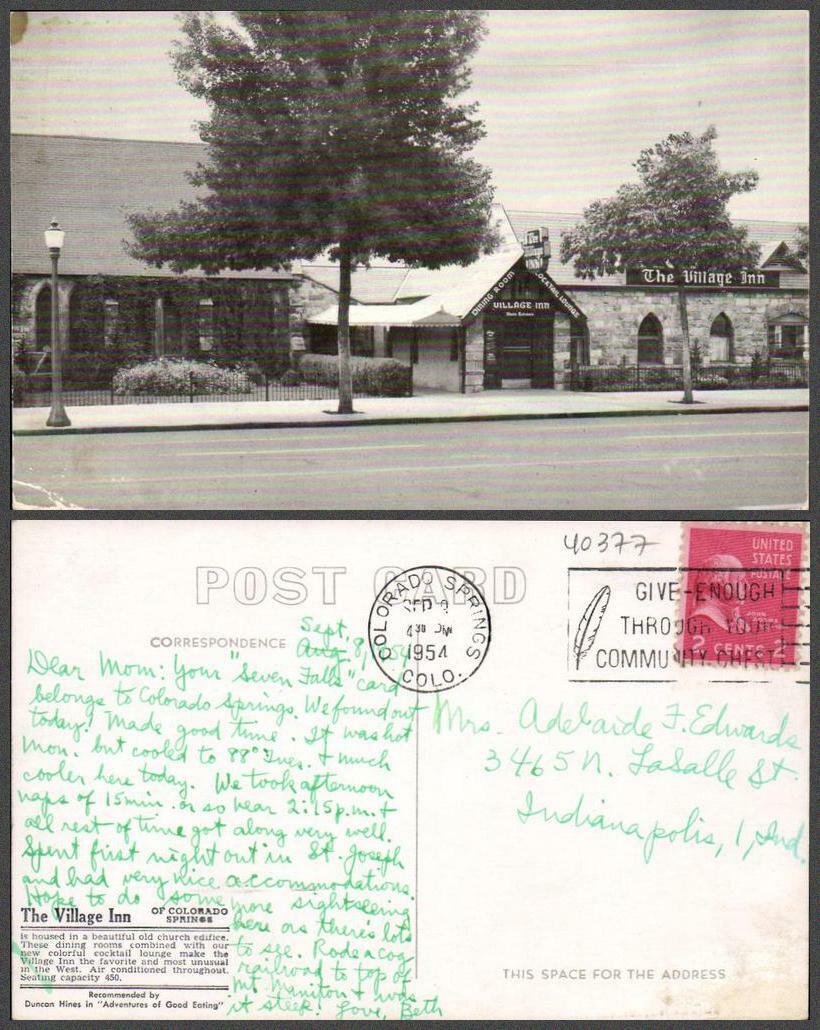 DINING ROOM
COCKTAIL LOUNGE
VILLAGE INN
Main Entrance
The Village Inn
40377
POST CARD
COLORADO SPRINGS
SEP 8
4 30 PM
1954
COLO.
GIVE-ENOUGH
THROUGH YOUR
COMMUNITY CHEST
UNITED
STATES
POSTAGE
JOHN ADAMS
2 CENTS 2
CORRESPONDENCE
Sept.
Aug. 8, 1954
Dear Mom: Your "Seven Falls" card
belongs to Colorado Springs. We found out
today! Made good time. It was hot
Mon. but cooled to 88° Tues. & much
cooler here today. We took afternoon
naps of 15 min. or so near 2:15 p.m. &
all rest of time got along very well.
Spent first night out in St. Joseph
and had very nice accommodations.
Hope to do some more sightseeing
here as there's lots
to see. Rode a cog
railroad to top of
Mt. Manitou & was
it steep! Love, Beth
Mrs. Adelaide F. Edwards
3465 N. LaSalle St.
Indianapolis, 1, Ind.
The Village Inn OF COLORADO SPRINGS
is housed in a beautiful old church edifice.
These dining rooms combined with our
new colorful cocktail lounge make the
Village Inn the favorite and most unusual
in the West. Air conditioned throughout.
Seating capacity 450.
Recommended by
Duncan Hines in "Adventures of Good Eating"
THIS SPACE FOR THE ADDRESS